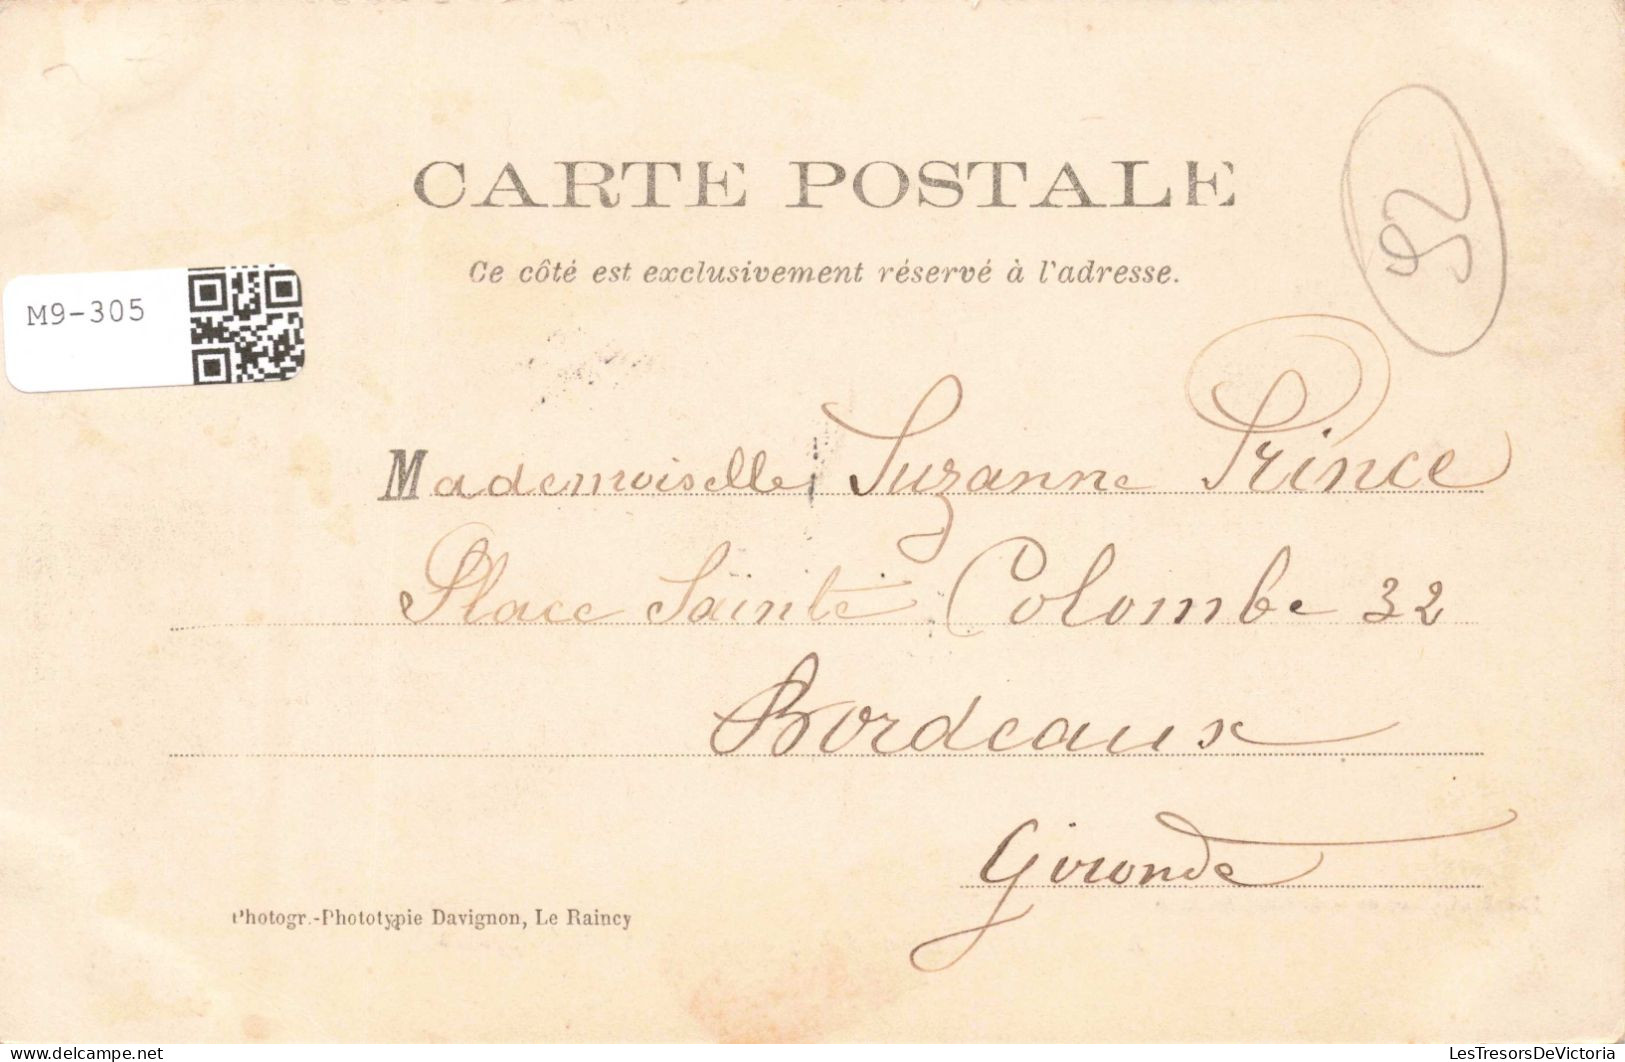 CARTE POSTALE
Ce côté est exclusivement réservé à l'adresse.
M9-305
Mademoiselle Suzanne Prince
Place Sainte Colombe 32
Bordeaux
Gironde
Photogr.-Phototypie Davignon, Le Raincy
LesTresorsDeVictoria